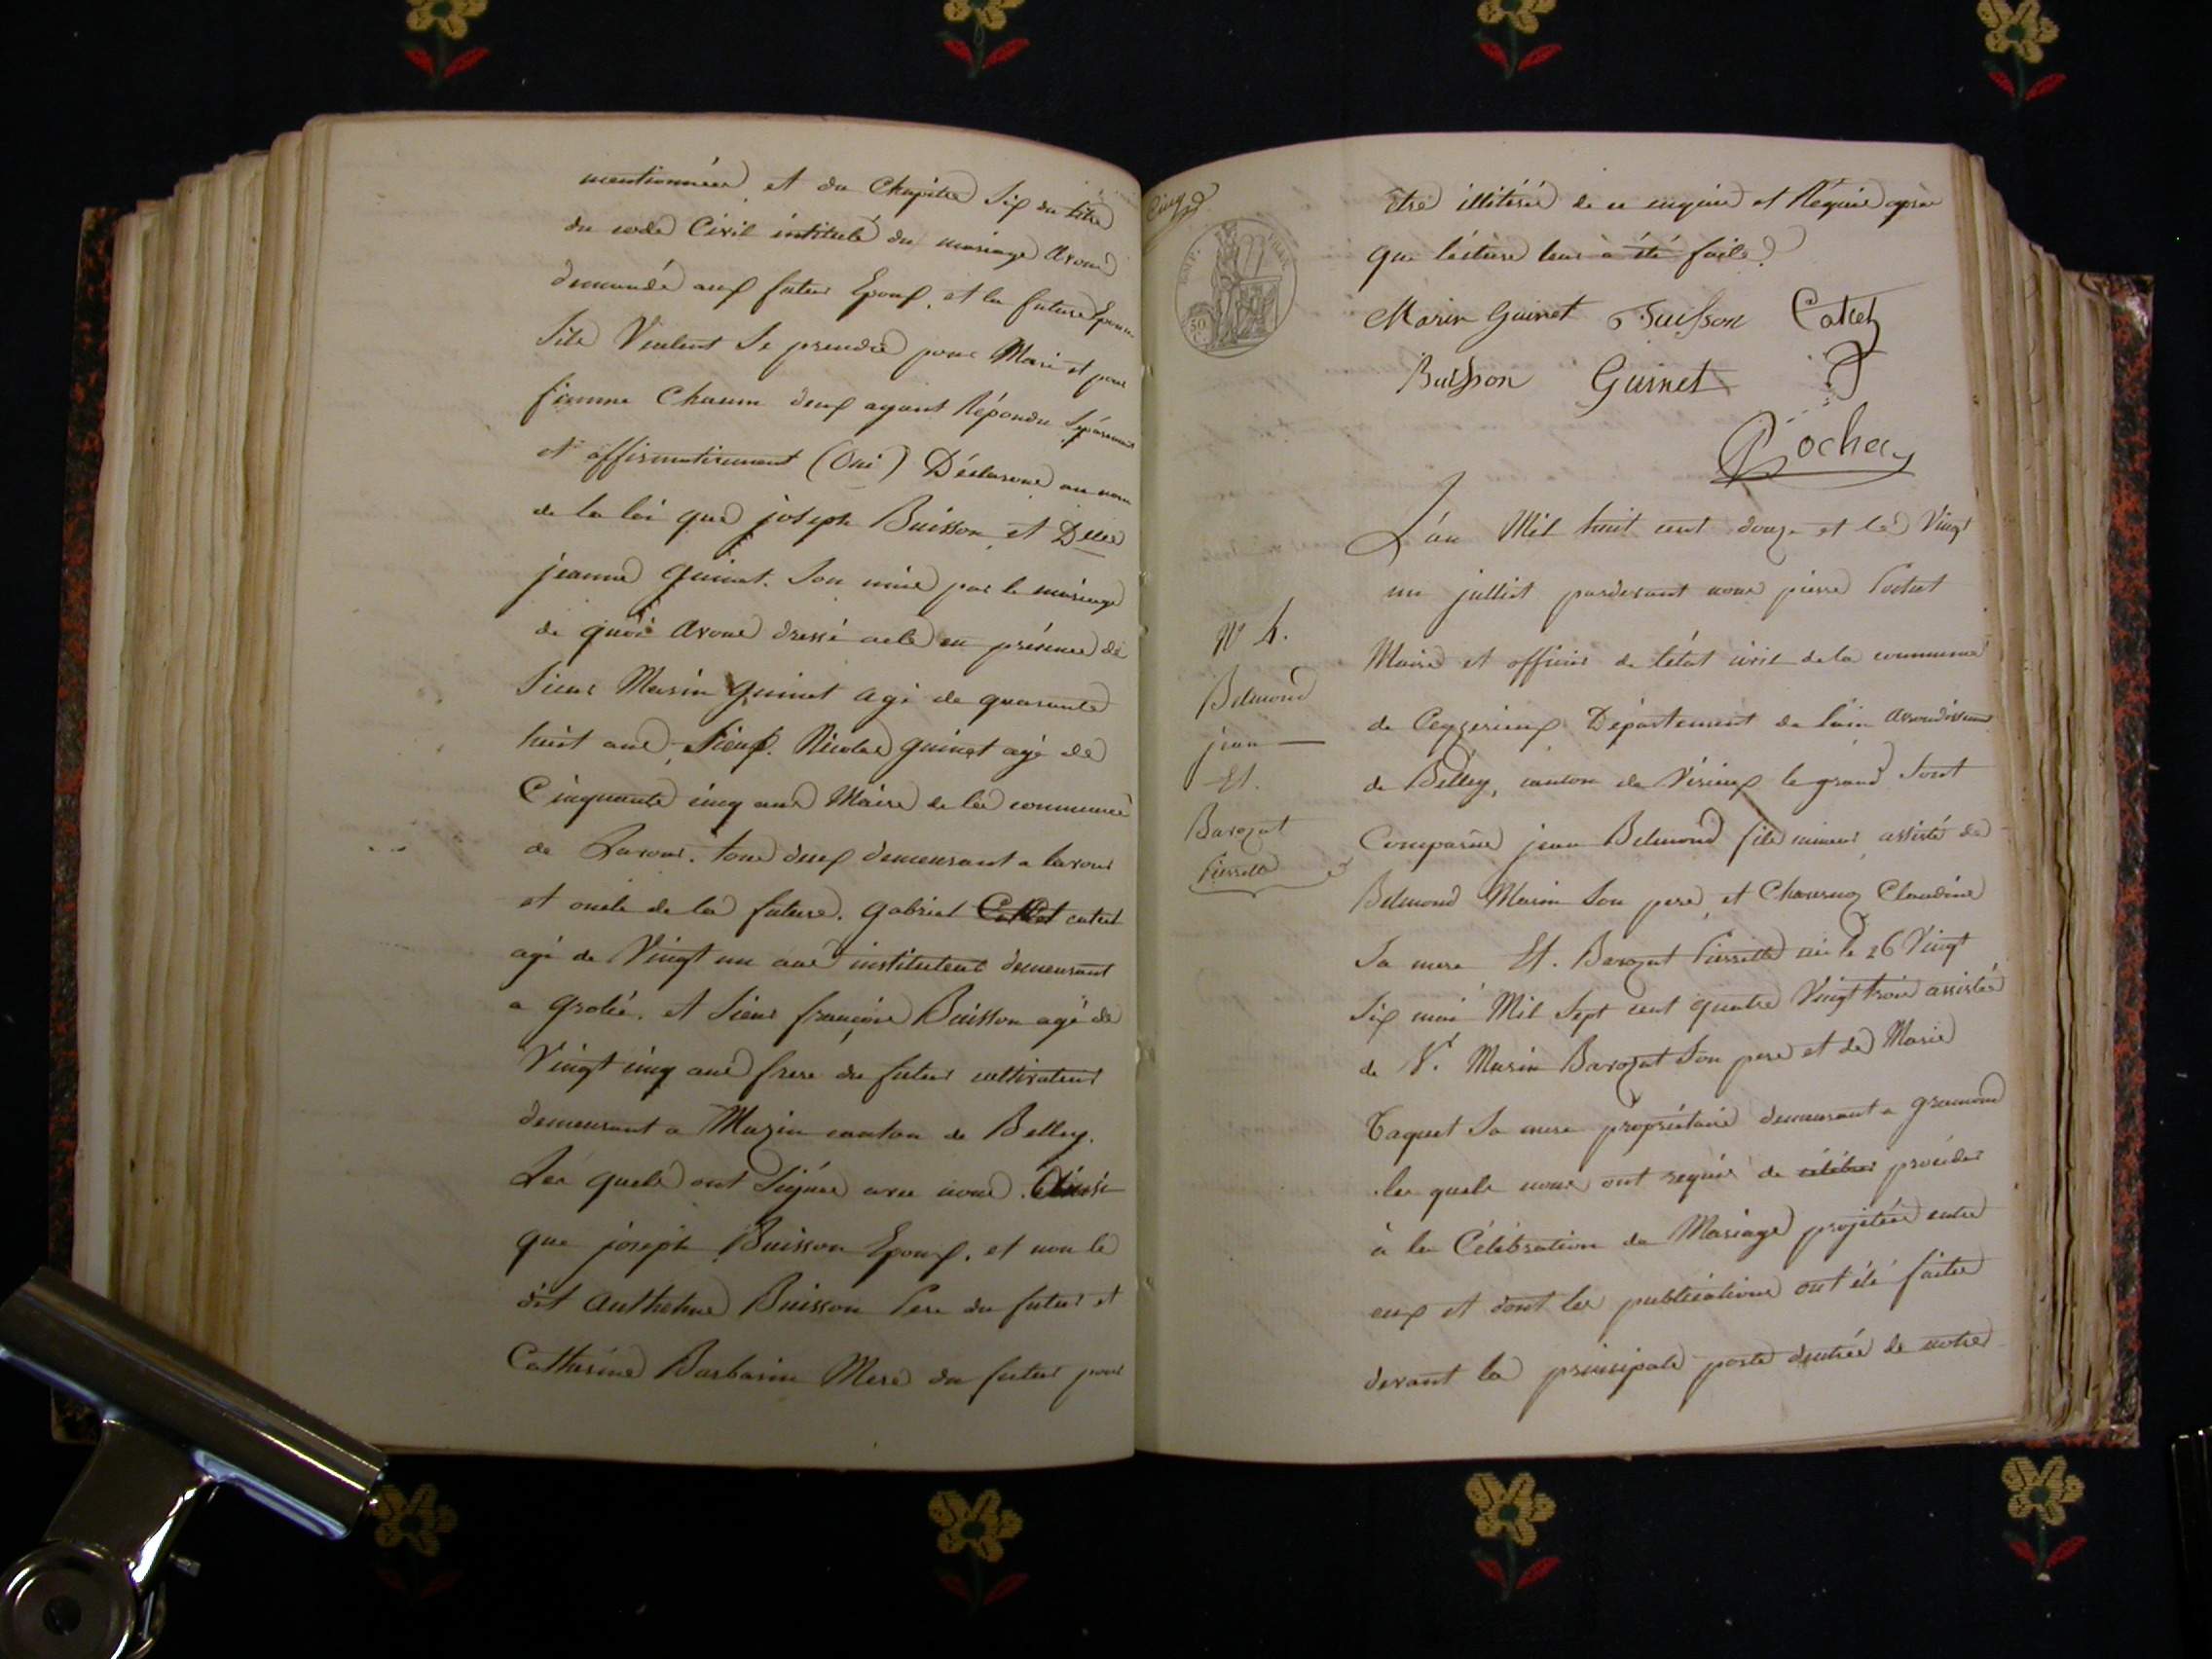 mentionnées et du Chapitre Six du titre
du code Civil intitulé du mariage avons
demandé aux futur Epoux et la future Epouse
Sils Veulent Se prendre pour Mari et pour
femme Chacun deux ayant Répondu Séparément
et affirmativement (Oui) Déclarons au nom
de la loi que joseph Buisson et Dlle
jeanne guinet. Son unis par le mariage
de quoi avons dressé acte en présence de
Sieur Marin guinet agé de quarante
huit ans, Sieur Nicolas guinet agé de
Cinquante cinq ans Maire de la commune
de Lavour. tous deux demeurant a lavour
et oncle de la future. gabriel Catet
agé de Vingt un ans instituteur demeurant
a grolée. et Sieur françois Buisson agé de
Vingt cinq ans frere du futur cultivateur
demeurant a Mazin canton de Belley.
Les quels ont Signés avec nous. Ainsi
que joseph Buisson Epoux. et non le
dit Anthelme Buisson Pere du futur et
Catherine Barbarin Mere du futur pour
Cinq
EMP. FRAN.
50 C.
être illitérés de ce enquis et Réquis après
que lécture leur à été faite
Marin guinet Buisson Catet
Buisson Guinet
Rochex
L'an Mil huit cent douze et le Vingt
un julliet pardevant nous pierre
Maire et officier de létat civil de la commune
de Ceyzerieux Département de lain arrondissement
de Belley, canton de Virieux le grand Sont
Comparus jean Belmond fils mineur assisté de
Belmond Marin Son pere et Claudine
Sa mere Et. Barozat Pierrette née le 26 Vingt
Six mai Mil Sept cent quatre Vingt trois assistée
de Marin Barozat Son pere et de Marie
Taquet Sa mere propriétaire demeurant a gramond
les quels nous ont requis de célébrer procéder
à la Célébration du Mariage projetée entre
eux et dont les publications ont été faites
devant la principale porte dentrée de notre
N° 4.
Belmond
jean
Et.
Barozat
Pierrette